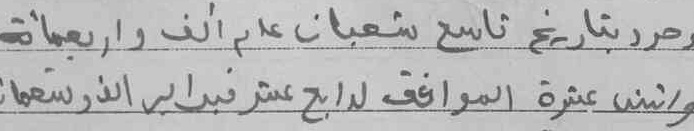 وحرر بتاريخ تاسع شعبان عام ألف واربعمائة
واثنى عشرة الموافق لرابع عشر فبراير الف وتسعمائ